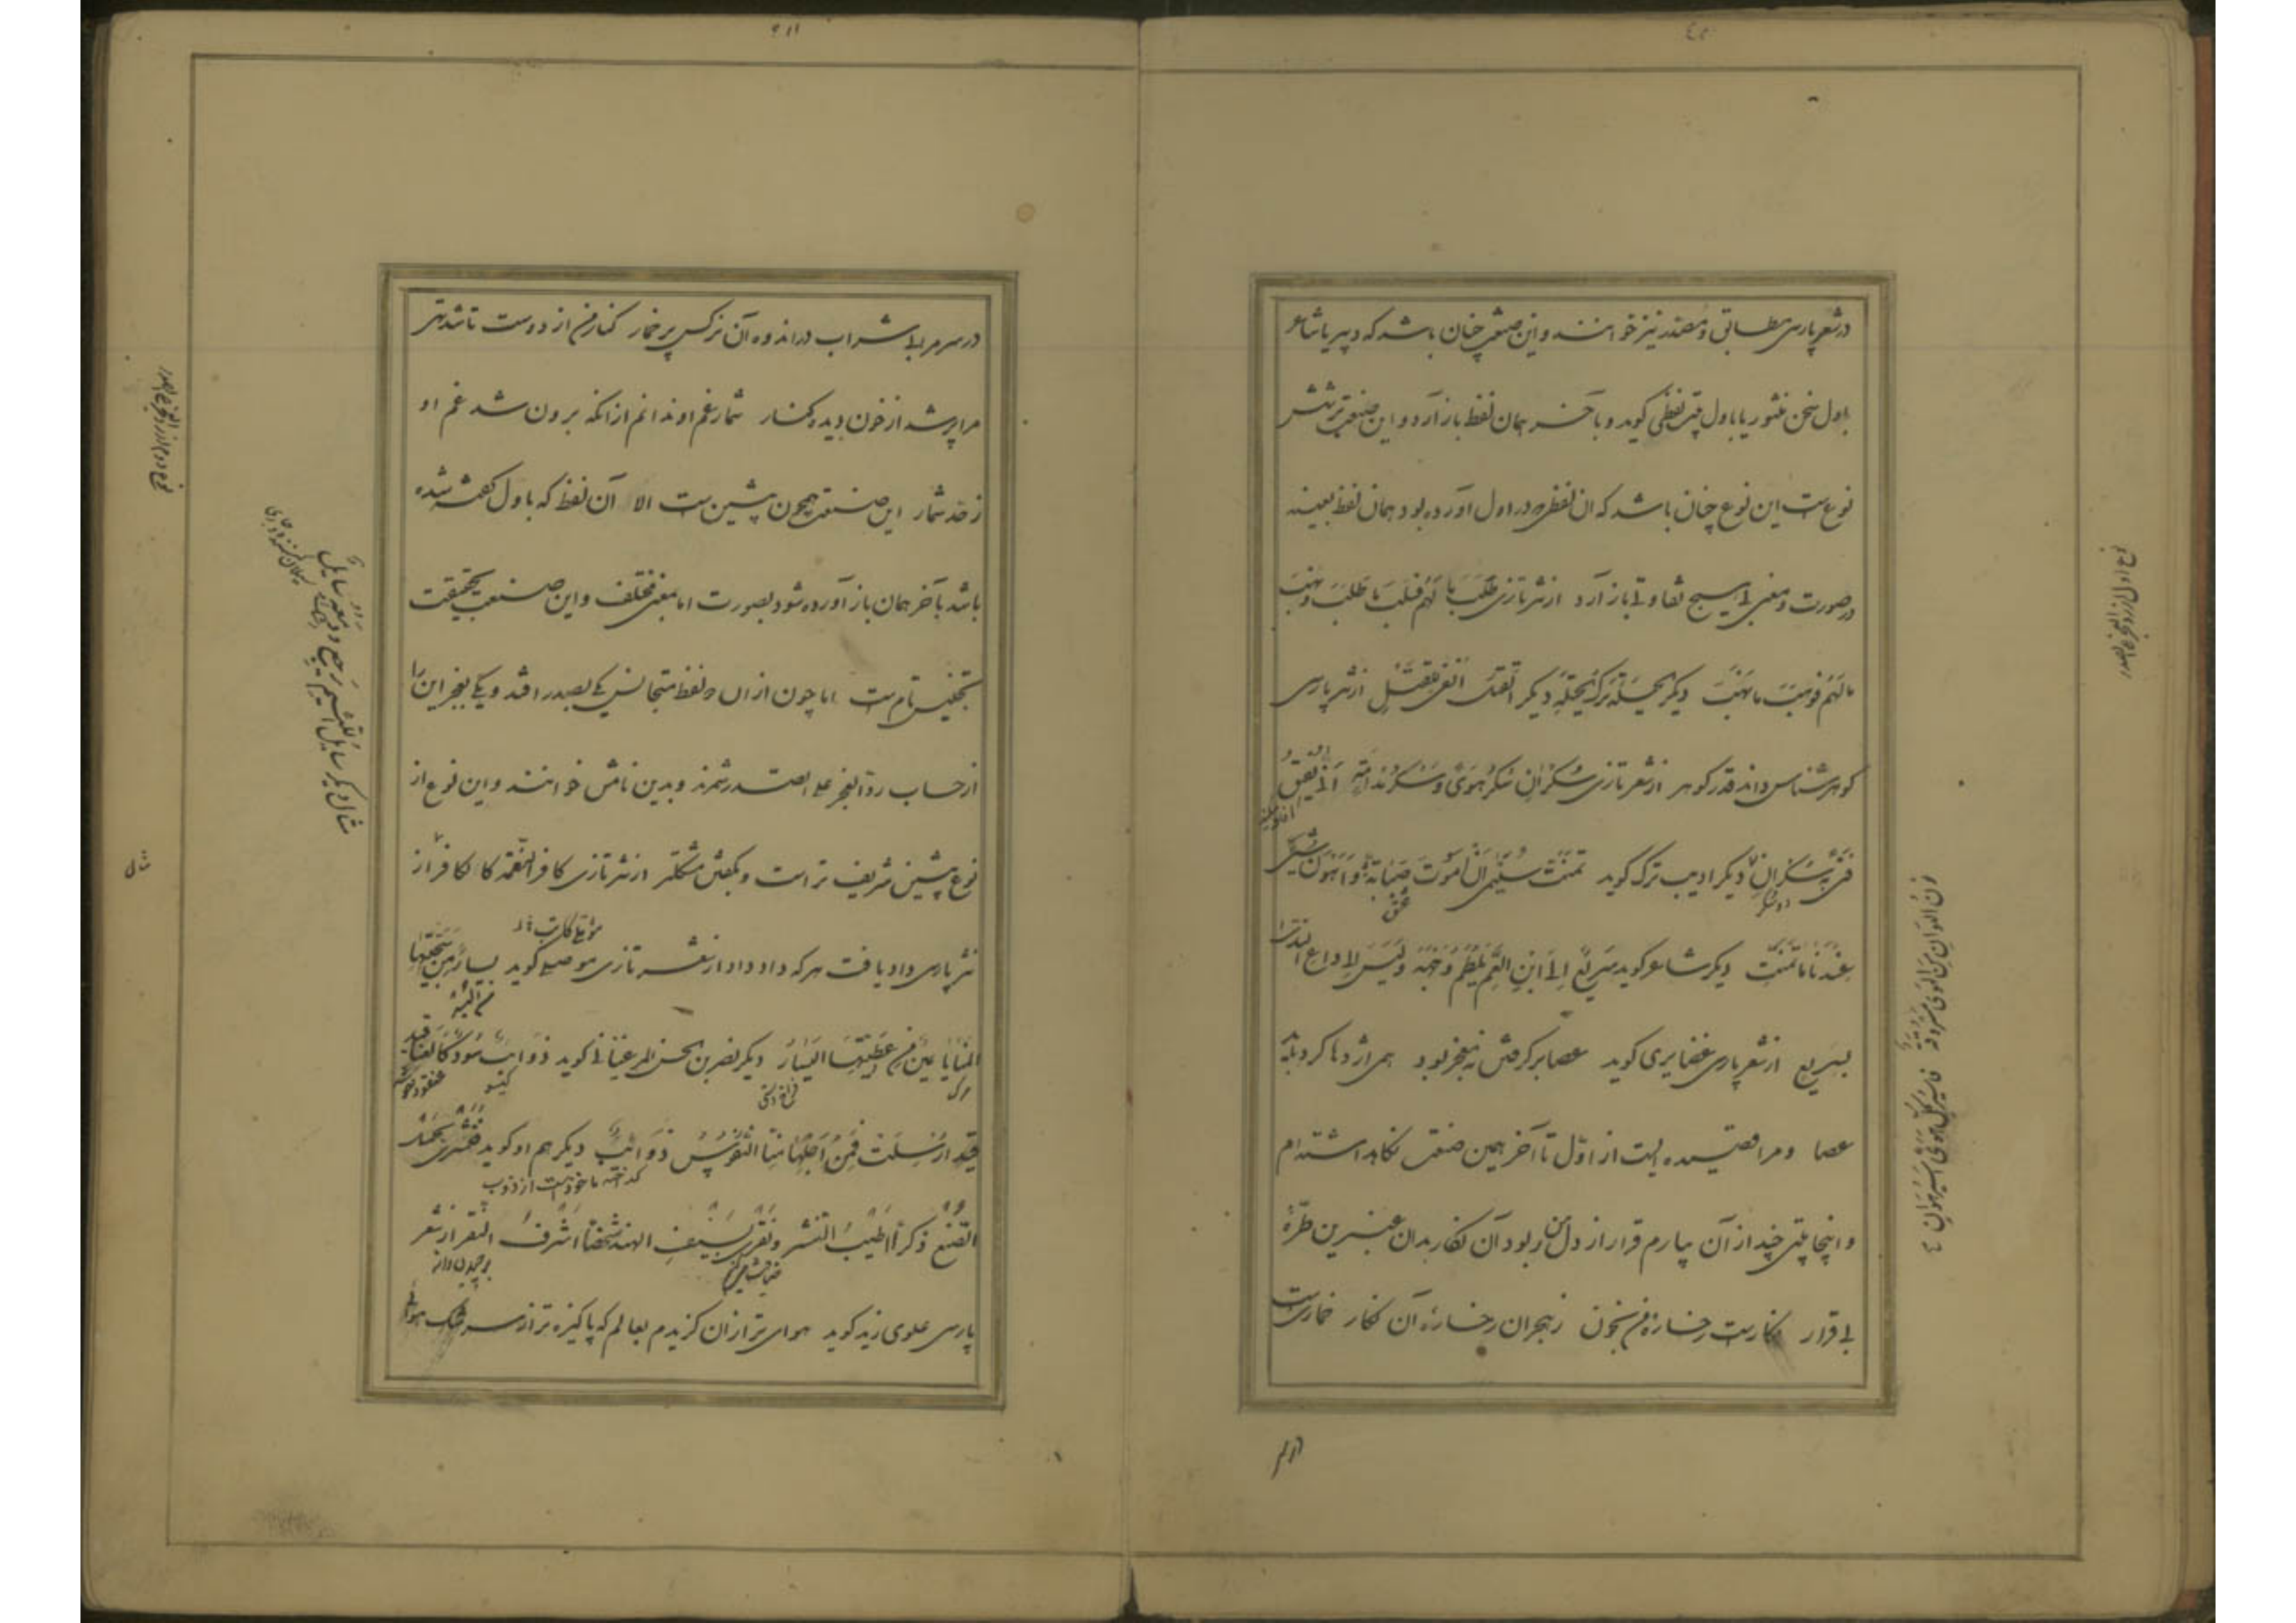 در شعر پارسی مطابق و مصدر نیز خوانند و این صنعت چنان باشد که دبیر یا شاعر
باول سخن منثور یا باول بیت لفظی گوید و بآخر همان لفظ باز آرد و این صنعت بر شش
نوعست این نوع چنان باشد که ان لفظ که در اول آورده بود همان لفظ بعینه
در صورت و معنی بی هیچ تفاوتی باز آرد از نثر تازی طلب مالهم فسلب ما طلب و نهب
مالهم فوهب ما نهب دیگر الحیلة ترک الحیلة دیگر القتل انفی للقتل از نثر پارسی
گوهر شناس داند قدر گوهر از شعر تازی سکران سکر هوی و سکر مدامة انی یفیق
فتی به سکران دیگر ادیب ترک گوید تمنت سلیمی ان اموت صبابة و اهون شیء
عندنا ما تمنت دیگر شاعر گوید سریع الی ابن العم یلطم وجهه و لیس الی داعی الندی
بسریع از شعر پارسی غضایری گوید عصا برگرفتن نه معجز بود همی اژدها کرد باید
عصا و مرا قصیده ایست از اول تا آخر همین صنعت نگاه داشته ام
و اینجا بیتی چند از آن بیارم قرار از دل من ربود آن نگار بدان عنبرین طرهٔ
بی قرار نگارست رخسارهٔ من بخون ز هجران رخسارهٔ آن نگار خمارست
در سر مرا بی شراب در اندوه آن نرکس پر خمار کنار من از دوست تا شد تهی
مرا پر شد از خون دیده کنار شمار غم او ندانم از انکه برون شد غم او
ز حد شمار این صنعت همچون پیشین ست الا آن لفظ که باول گفته شده
باشد بآخر همان باز آورده شود بصورت اما بمعنی مختلف و این صنعت بحقیقت
تجنیس تام ست اما چون از ان دو لفظ متجانس یکی بصدر افتد و یکی بعجز این را
از حساب رد العجز علی الصدر شمرند و بدین نامش خوانند و این نوع از
نوع پیشین شریف تر است و بگفتن مشکلتر از نثر تازی کافر النعمة کالکافر از
نثر پارسی داد یافت هر که داد داد از شعر تازی موصلی گوید یسار من سجیتها
المنایا و یمنی من عطیتها الیسار دیگر نصر بن الحسن المرغینانی گوید ذوائب سود کالعناقید
ارسلت فمن اجلها منا النفوس ذوائب دیگر هم او گوید فنشری بجمیل
الصنع ذکرا اطیب النشر و نفری بسیف الهند شخصا اشرف النفر از شعر
پارسی علوی زیدی گوید هوای ترا زان گزیدم بعالم که پاکیزه تر از سرشک هوایی
مثال
نوع دوم از رد العجز علی الصدر